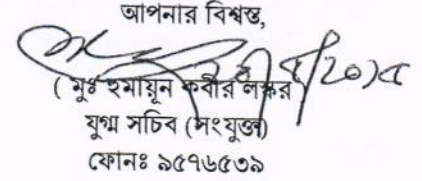 আপনার বিশ্বস্ত,
( মুঃ হুমায়ূন কবীর লস্কর
যুগ্ম সচিব (সংযুক্ত)
ফোনঃ ৯৫৭৬৫৩৯